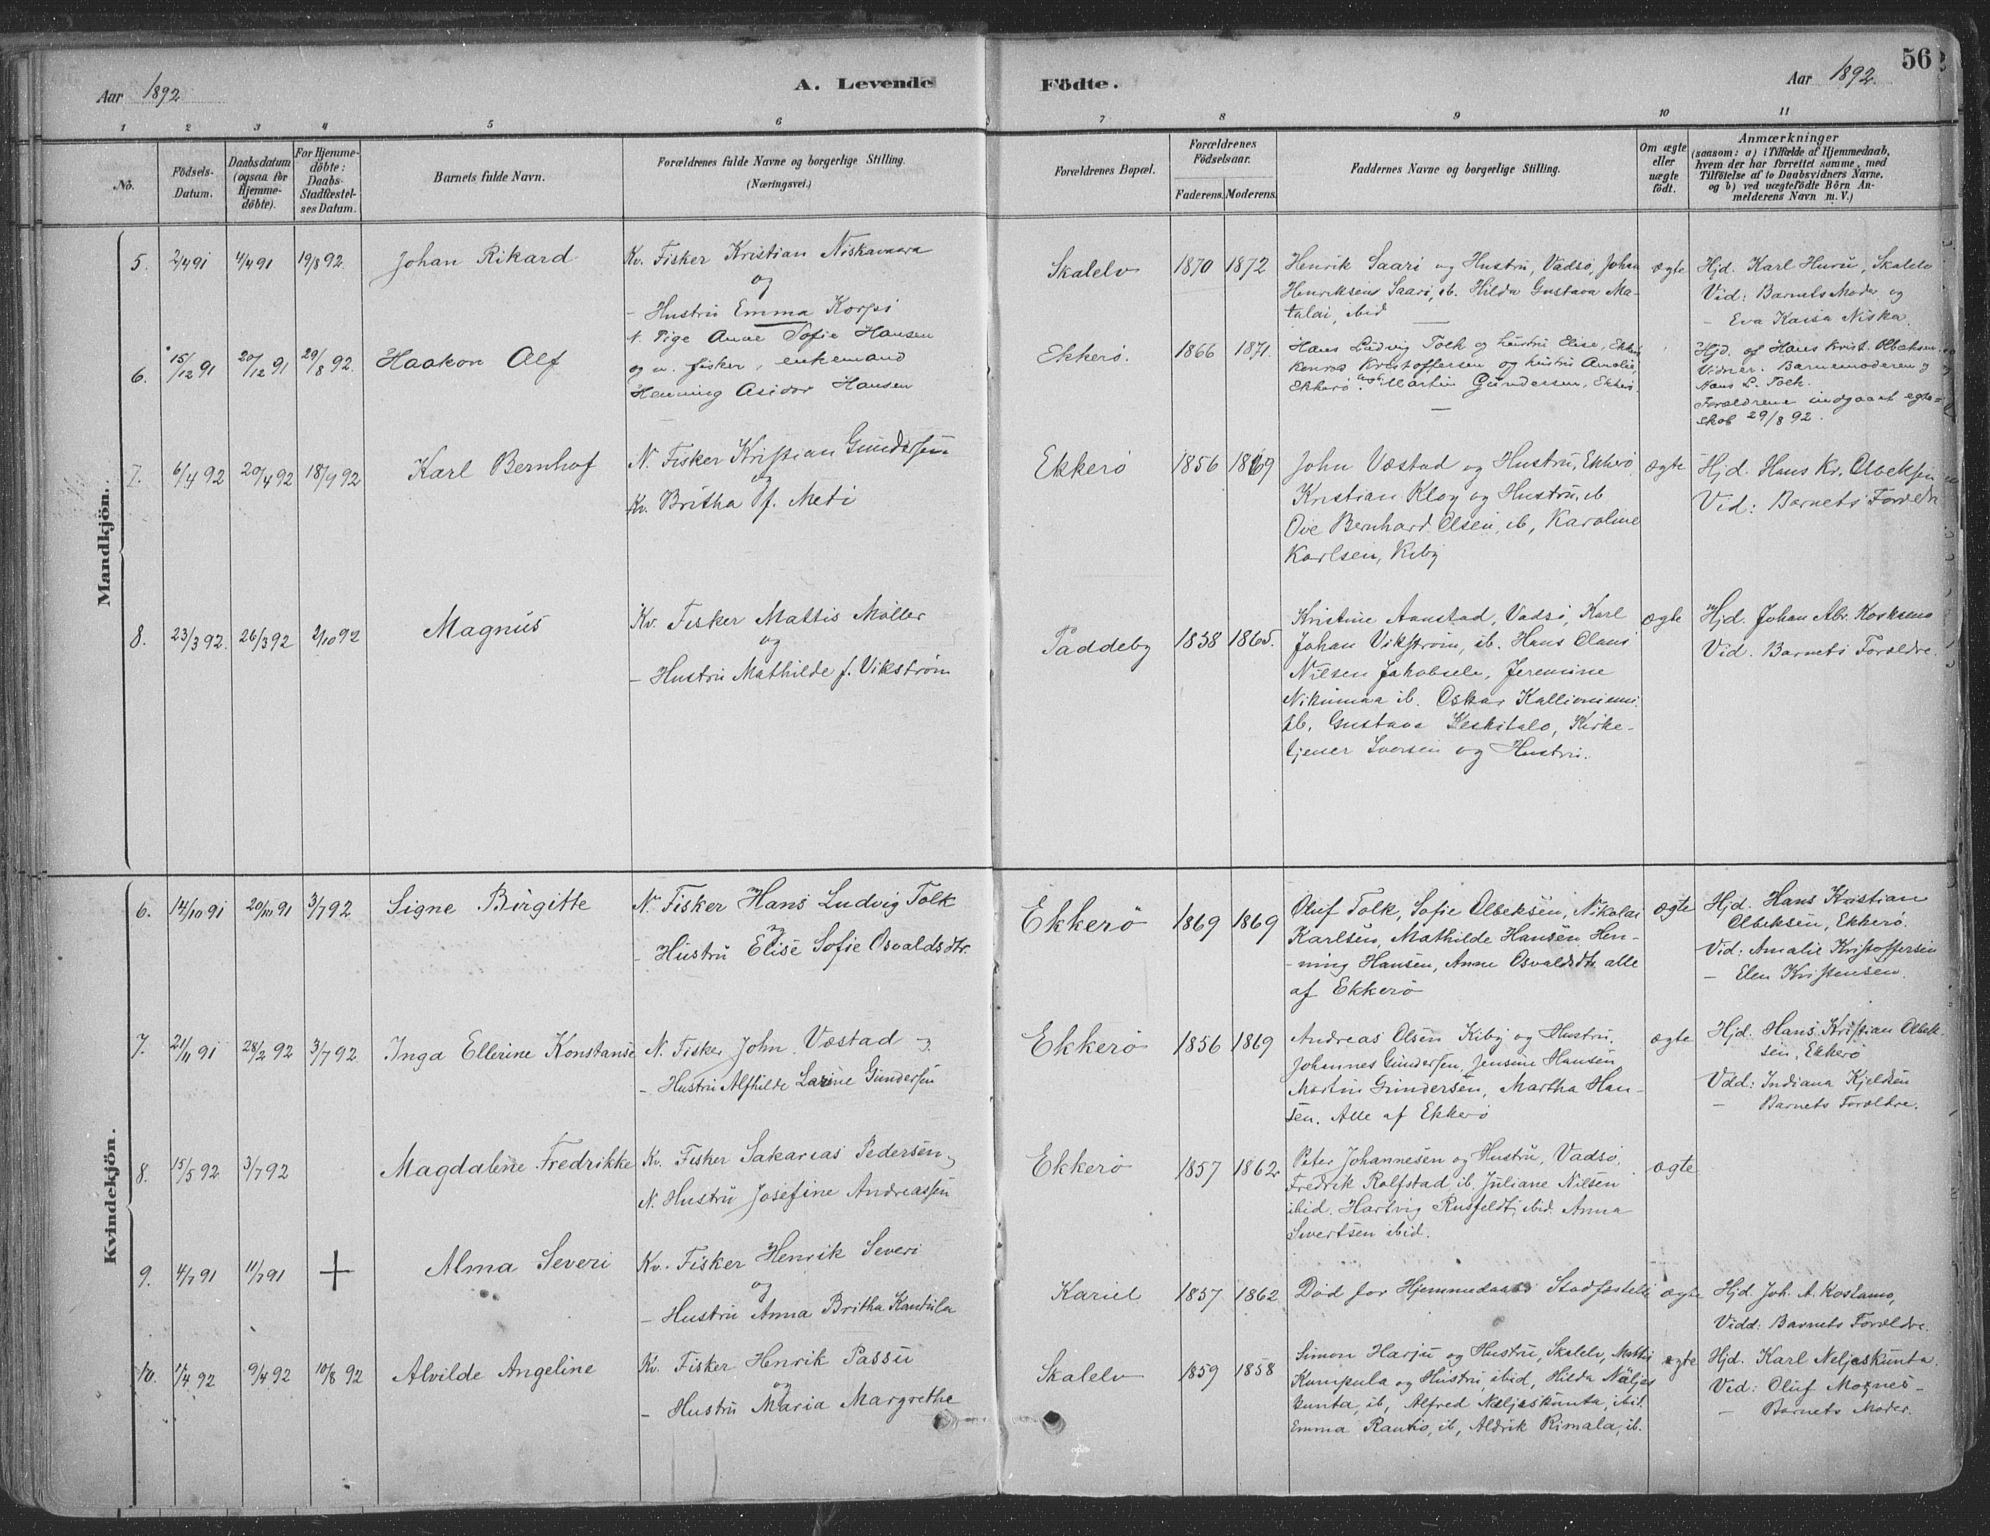 Aar 1892
A. Levende
Födte.
Aar 1892.
56
1 2 3 4 5 6 7 8 9 10 11
No.
Födsels-
Datum.
Daabsdatum
(ogsaa for
Hjemme-
döbte).
For Hjemme-
döbte:
Daabs-
Stadfæstel-
ses Datum.
Barnets fulde Navn.
Forældrenes fulde Navne og borgerlige Stilling.
(Næringsvei.)
Forældrenes Bopæl.
Forældrenes
Födselsaar.
Faderens. Moderens.
Faddernes Navne og borgerlige Stilling.
Om ægte
eller
uægte
födt.
Anmærkninger
(saasom: a) i Tilfælde af Hjemmedaab,
hvem der har forrettet samme, med
Tilföielse af to Daabsvidners Navne.
og b) ved uægtefödte Börn An-
melderens Navn m. V.)
Mandkjön.
5. 2/4 91 4/4 91 19/8 92. Johan Rikard
Kv. Fisker Kristian Niskavaara
og
- Hustru Emma Korpi
Skalelv 1870 1872
Henrik Saari og Hustru, Vadsö, Johan
Henriksens Saari, ib. Hilda Gustava Ma-
talai, ibid
ægte
Hjd. Karl Huru, Skalelv
Vid: Barnets Moder og
- Eva Kaisa Niska.
6. 15/12 91 20/12 91 29/8 92. Haakon Alf
N. Pige Anne Sofie Hansen
og n. fisker, enkemand
Henning Asidor Hansen
Ekkerö. 1866 1871.
Hans Ludvig Tolk og hustru Elise, Ekkerö
Konrad Kristoffersen og hustru Amalie,
Ekkerö Martin Gundersen, Ekkerö
Hjd. af Hans Krist. Olbeksen
Vidner. Barnemoderen og
Hans L. Tolk.
Forældrene indgaaet egte-
skab 29/8 92.
7. 6/4 92 20/4 92 18/9 92 Karl Bernhof
N. Fisker Kristian Gundersen
og
Kv. Britha f. Meti
Ekkerö 1856 1869
John Væstad og Hustru, Ekkerö
Kristian Kloy og Hustru, ib
Ove Bernhard Olsen, ib, Karoline
Karlsen, Kiby
ægte
Hjd. Hans Kr. Olbeksen
Vid: Barnets Forældre
8. 23/3 92. 26/3 92 2/10 92 Magnus
Kv. Fisker Mattis Møller
og
- Hustru Mathilde f. Vikström
Paddeby 1838 1865.
Kristine Aanstad, Vadsö, Karl
Johan Vikström, ib. Hans Claus
Nilsen Jakobselv, Jeremine
Nikumaa ib. Oskar Kallioniemi
ib. Gustava Keskitalo, Kirke-
tjener Iversen og Hustru.
ægte
Hjd. Johan Abr. Koskamo
Vid. Barnets Forældre.
Kvindekjön.
6. 14/10 91 20/10 91 3/7 92 Signe Birgitte
N. Fisker Hans Ludvig Tolk
og
- Hustru Elise Sofie Osvaldsdtr.
Ekkerö 1869 1869
Oluf Tolk, Sofie Olbeksen, Nikolai
Karlsen, Mathilde Hansen, Hen-
ning Hansen, Anne Osvaldsdtr alle
af Ekkerö
ægte
Hjd. Hans Kristian
Olbeksen, Ekkerö.
Vid: Amalie Kristoffersen
- Elen Kristensen.
7. 21/11 91 28/2 92 3/7 92. Inga Ellerine Konstanse
N. Fisker John Væstad og
- Hustru Alfhilde Larine Gundersen
Ekkerö 1856 1869
Andreas Olsen Kiby og Hustru.
Johannes Gundersen, Jensine Hansen
Martin Gundersen, Martha Han-
sen. Alle af Ekkerö
ægte
Hjd. Hans Kristian Olbek-
sen, Ekkerö
Vdd: Indiana Kjeldsen
- Barnets Forældre.
8. 15/5 92 3/7 92 - Magdaline Fredrikke
Kv. Fisker Sakarias Pedersen og
N. Hustru Josefine Andreassen
Ekkerö 1857 1862
Peter Johannesen og Hustru, Vadsö,
Fredrik Rolfstad ib. Juliane Nilsen
ibid. Hartvig Rusfeldt, ibid. Anna
Sivertsen ibid.
ægte
9. 4/7 91 11/7 91 + Alma Severi
Kv. Fisker Henrik Severi
og
- Hustru Anna Britha Kantula
Kariel 1857 1862
Död for Hjemmedaabs Stadfæstelse
ægte
Hjd. Joh. A. Koslamo,
Vidd: Barnets Forældre.
10. 1/4 92 9/4 92 10/8 92 Alvilde Angeline
Kv. Fisker Henrik Passu
og
- Hustru Maria Margrethe
Skalelv 1859 1858
Simon Harju og Hustru, Skalelv, Mattis
Kumpula og Hustru, ibid, Hilda Näljes
kunta, ib, Alfred Näljeskunta, ibid.
Emma Rantio, ib, Aldrik Rimala, ib.
ægte
Hjd. Karl Neljeskunta.
Vid: Oluf Mognes-
- Barnets Moder.